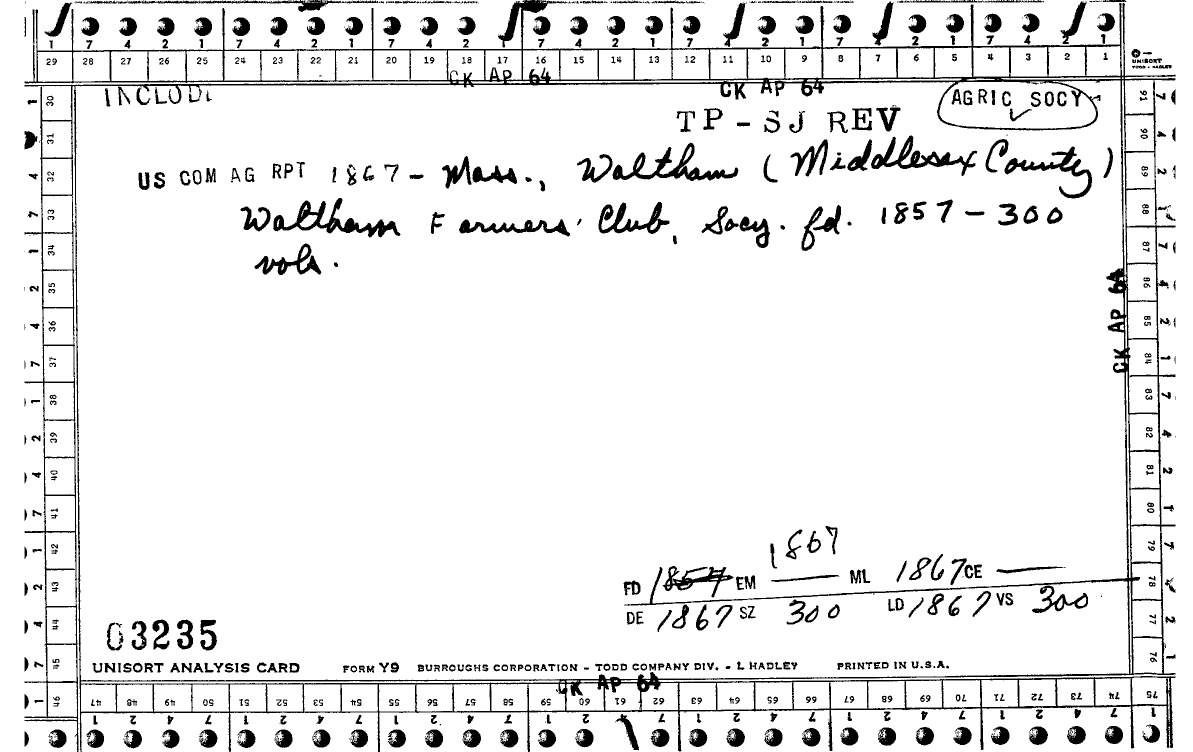 1 7 4 2 1 7 4 2 1 7 4 2 1 7 4 2 1 7 4 2 1 7 4 2 1 7 4 2 1
29 28 27 26 25 24 23 22 21 20 19 18 17 16 15 14 13 12 11 10 9 8 7 6 5 4 3 2 1
UNISORT
TODD - HADLEY
CK AP 64
CK AP 64
AGRIC SOCY
TP - SJ REV
US COM AG RPT 1867 - Mass., Waltham (Middlesex County)
Waltham Farmers' Club, Socy. fd. 1857 - 300
vols.
30 31 32 33 34 35 36 37 38 39 40 41 42 43 44 45 46
91 90 89 88 87 86 85 84 83 82 81 80 79 78 77 76
CK AP 64
1867
FD EM ML 1867 CE
DE 1867 SZ 300 LD 1867 VS 300
03235
UNISORT ANALYSIS CARD FORM Y9 BURROUGHS CORPORATION - TODD COMPANY DIV. - L HADLEY PRINTED IN U.S.A.
CK AP 64
47 48 49 50 51 52 53 54 55 56 57 58 59 60 61 62 63 64 65 66 67 68 69 70 71 72 73 74 75